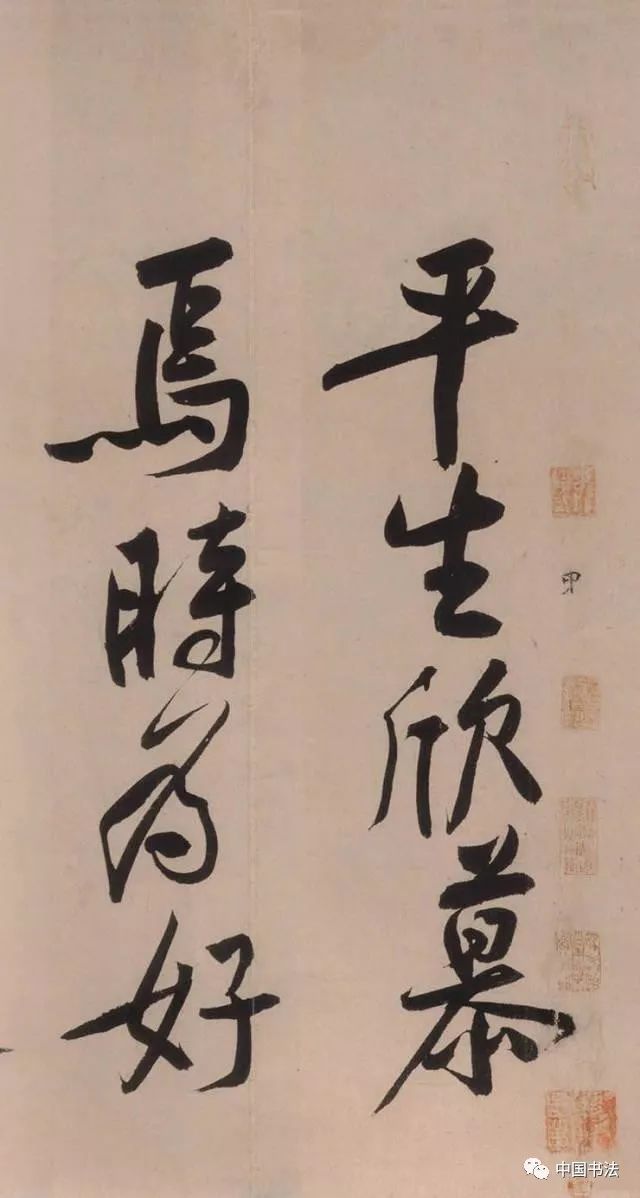 平生欣慕
焉時為好
甲
中国书法